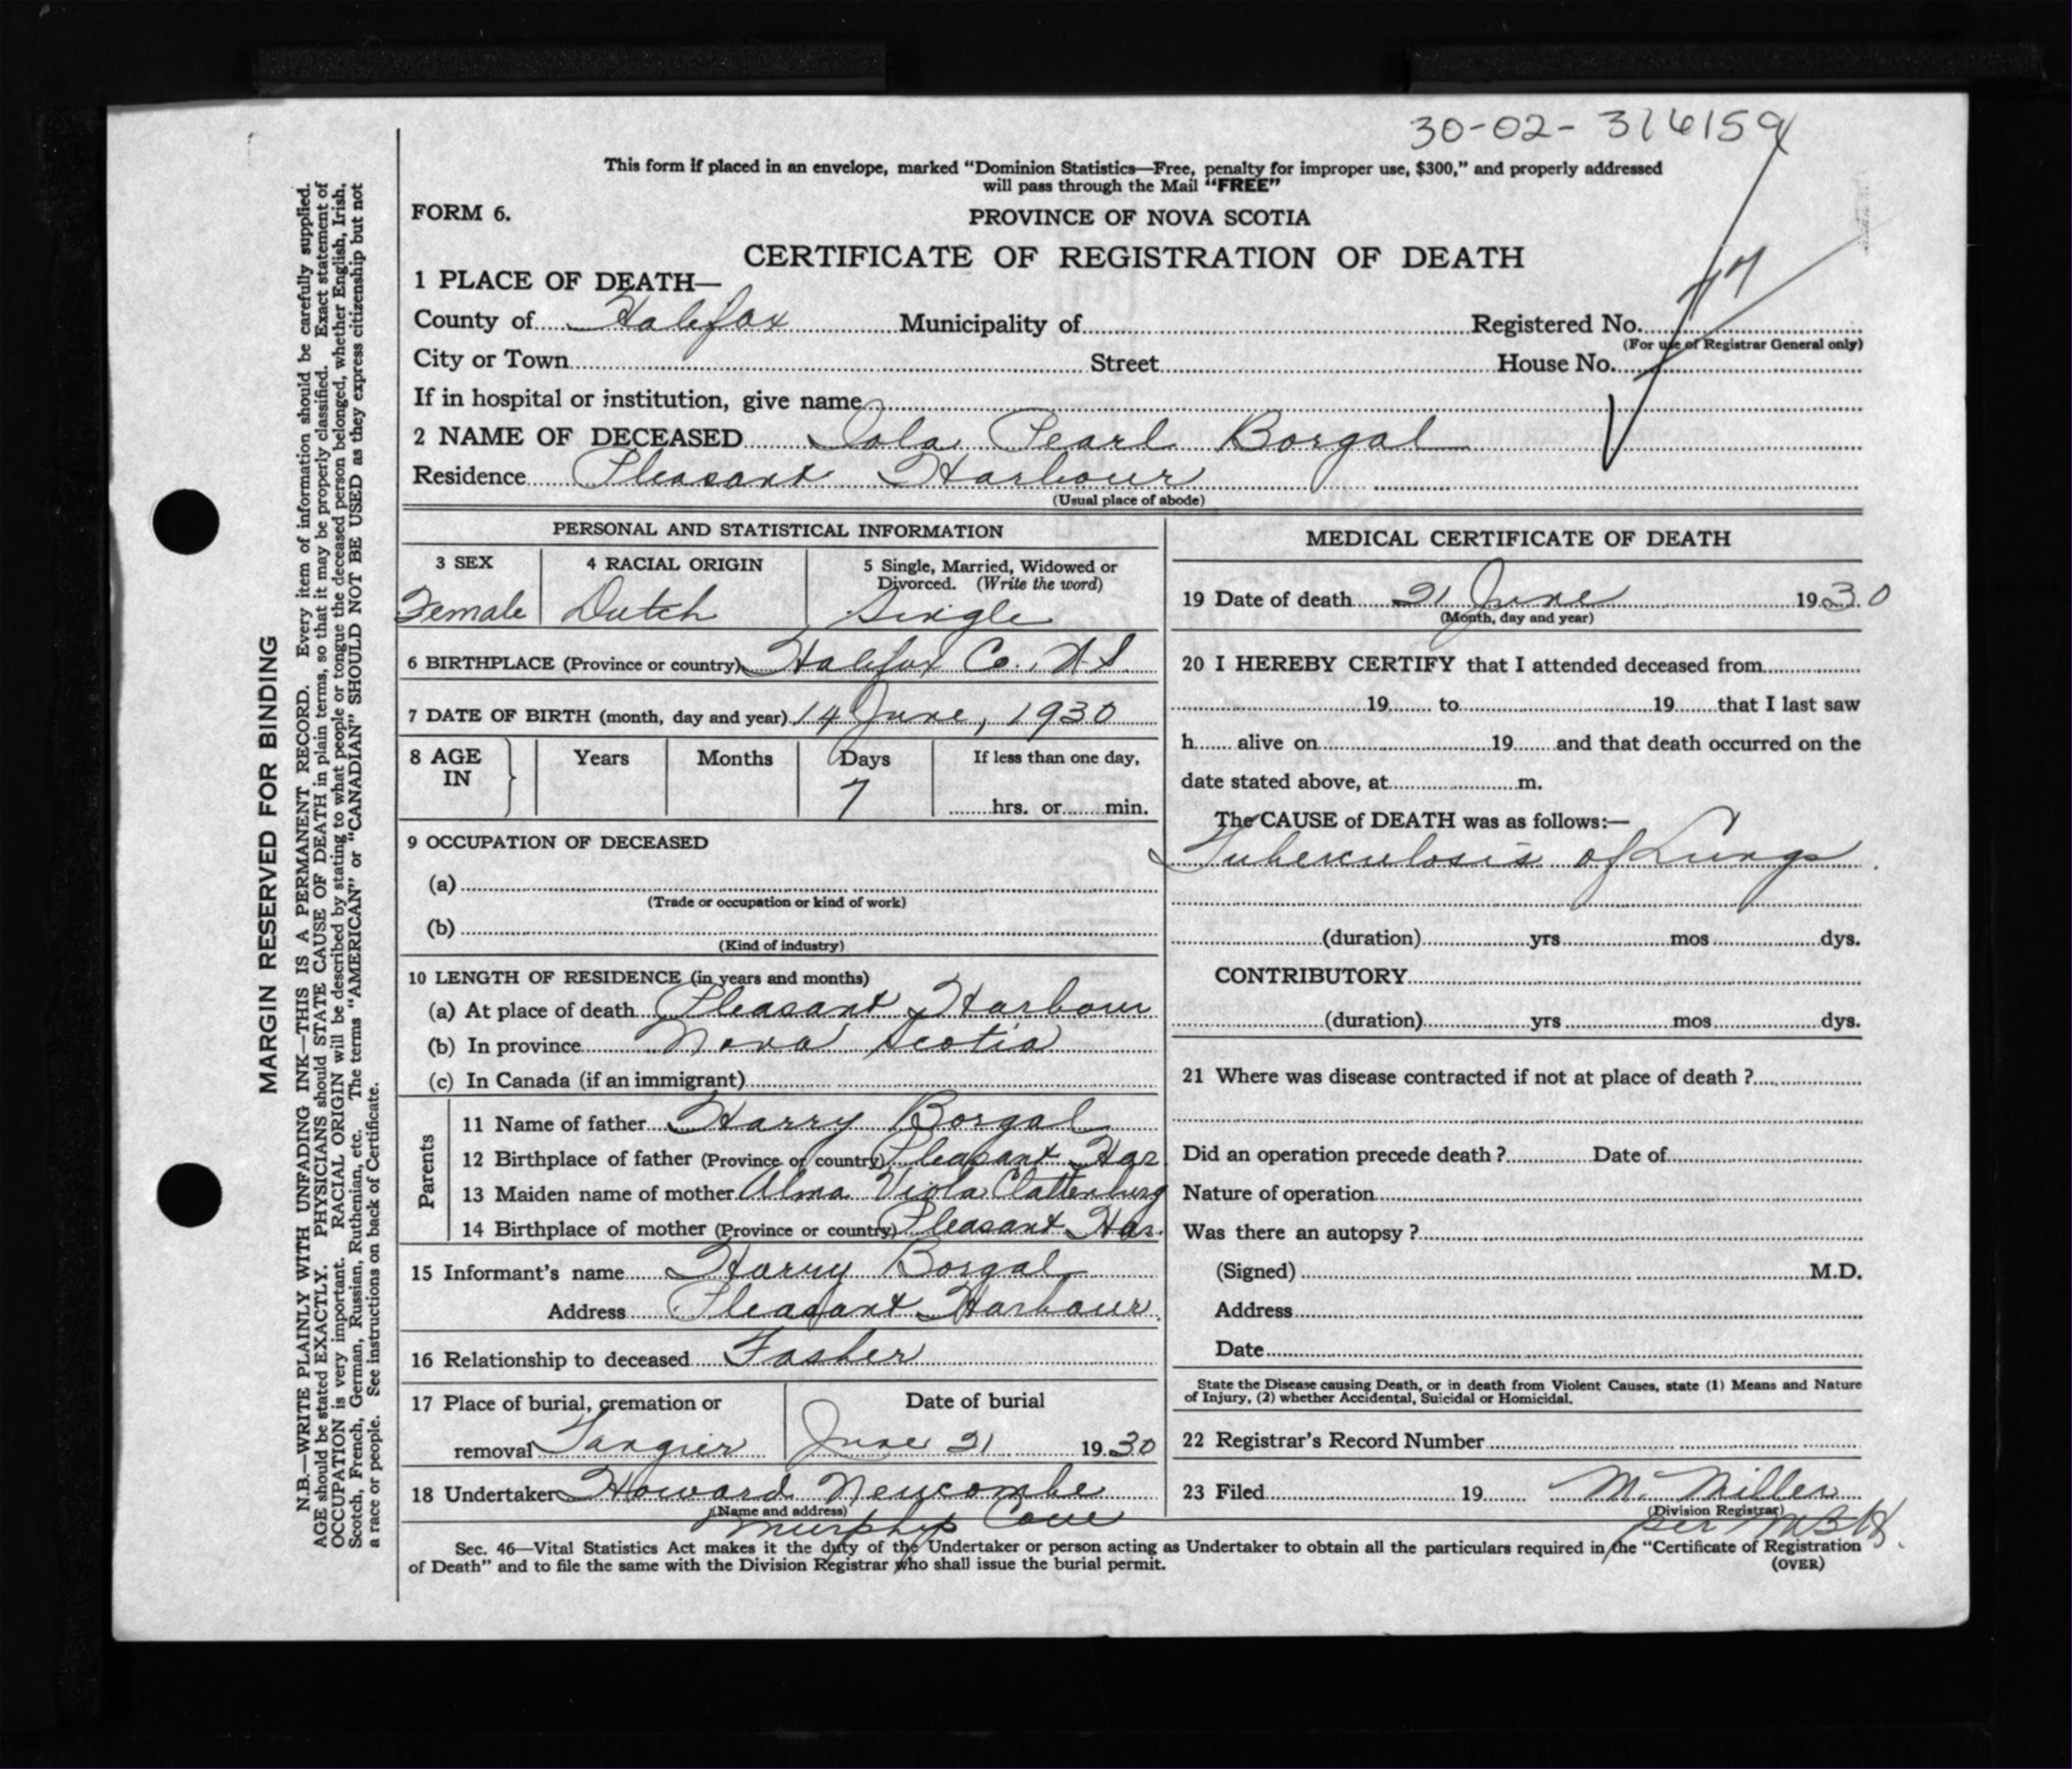 30-02-316159
This form if placed in an envelope, marked "Dominion Statistics—Free, penalty for improper use, $300," and properly addressed
will pass through the Mail "FREE"
FORM 6.
PROVINCE OF NOVA SCOTIA
CERTIFICATE OF REGISTRATION OF DEATH
1 PLACE OF DEATH—
County of Halifax Municipality of Registered No.
(For use of Registrar General only)
City or Town Street House No.
If in hospital or institution, give name
2 NAME OF DECEASED Iola Pearl Borgal
Residence Pleasant Harbour
(Usual place of abode)
PERSONAL AND STATISTICAL INFORMATION
3 SEX 4 RACIAL ORIGIN 5 Single, Married, Widowed or
Divorced. (Write the word)
Female Dutch Single
6 BIRTHPLACE (Province or country) Halifax Co. N.S.
7 DATE OF BIRTH (month, day and year) 14 June, 1930
8 AGE Years Months Days If less than one day,
IN 7 hrs. or min.
9 OCCUPATION OF DECEASED
(a)
(Trade or occupation or kind of work)
(b)
(Kind of industry)
10 LENGTH OF RESIDENCE (in years and months)
(a) At place of death Pleasant Harbour
(b) In province Nova Scotia
(c) In Canada (if an immigrant)
Parents
11 Name of father Harry Borgal
12 Birthplace of father (Province or country) Pleasant Har
13 Maiden name of mother Alma Viola Clattenburg
14 Birthplace of mother (Province or country) Pleasant Har.
15 Informant's name Harry Borgal
Address Pleasant Harbour
16 Relationship to deceased Father
17 Place of burial, cremation or Date of burial
removal Tangier June 21 1930
18 Undertaker Howard Newcombe
(Name and address)
Murphys Cove
MEDICAL CERTIFICATE OF DEATH
19 Date of death 21 June 1930
(Month, day and year)
20 I HEREBY CERTIFY that I attended deceased from
19 to 19 that I last saw
h alive on 19 and that death occurred on the
date stated above, at m.
The CAUSE of DEATH was as follows:—
Tuberculosis of Lungs
(duration) yrs mos dys.
CONTRIBUTORY
(duration) yrs mos dys.
21 Where was disease contracted if not at place of death ?
Did an operation precede death ? Date of
Nature of operation
Was there an autopsy ?
(Signed) M.D.
Address
Date
State the Disease causing Death, or in death from Violent Causes, state (1) Means and Nature
of Injury, (2) whether Accidental, Suicidal or Homicidal.
22 Registrar's Record Number
23 Filed 19 M. Miller
(Division Registrar)
per
Sec. 46—Vital Statistics Act makes it the duty of the Undertaker or person acting as Undertaker to obtain all the particulars required in the "Certificate of Registration
of Death" and to file the same with the Division Registrar who shall issue the burial permit.
(OVER)
MARGIN RESERVED FOR BINDING
N.B.—WRITE PLAINLY WITH UNFADING INK—THIS IS A PERMANENT RECORD. Every item of information should be carefully supplied.
AGE should be stated EXACTLY. PHYSICIANS should STATE CAUSE OF DEATH in plain terms, so that it may be properly classified. Exact statement of
OCCUPATION is very important. RACIAL ORIGIN will be described by stating to what people or tongue the deceased person belonged, whether English, Irish,
Scotch, French, German, Russian, Ruthenian, etc. The terms "AMERICAN" or "CANADIAN" SHOULD NOT BE USED as they express citizenship but not
a race or people. See instructions on back of Certificate.